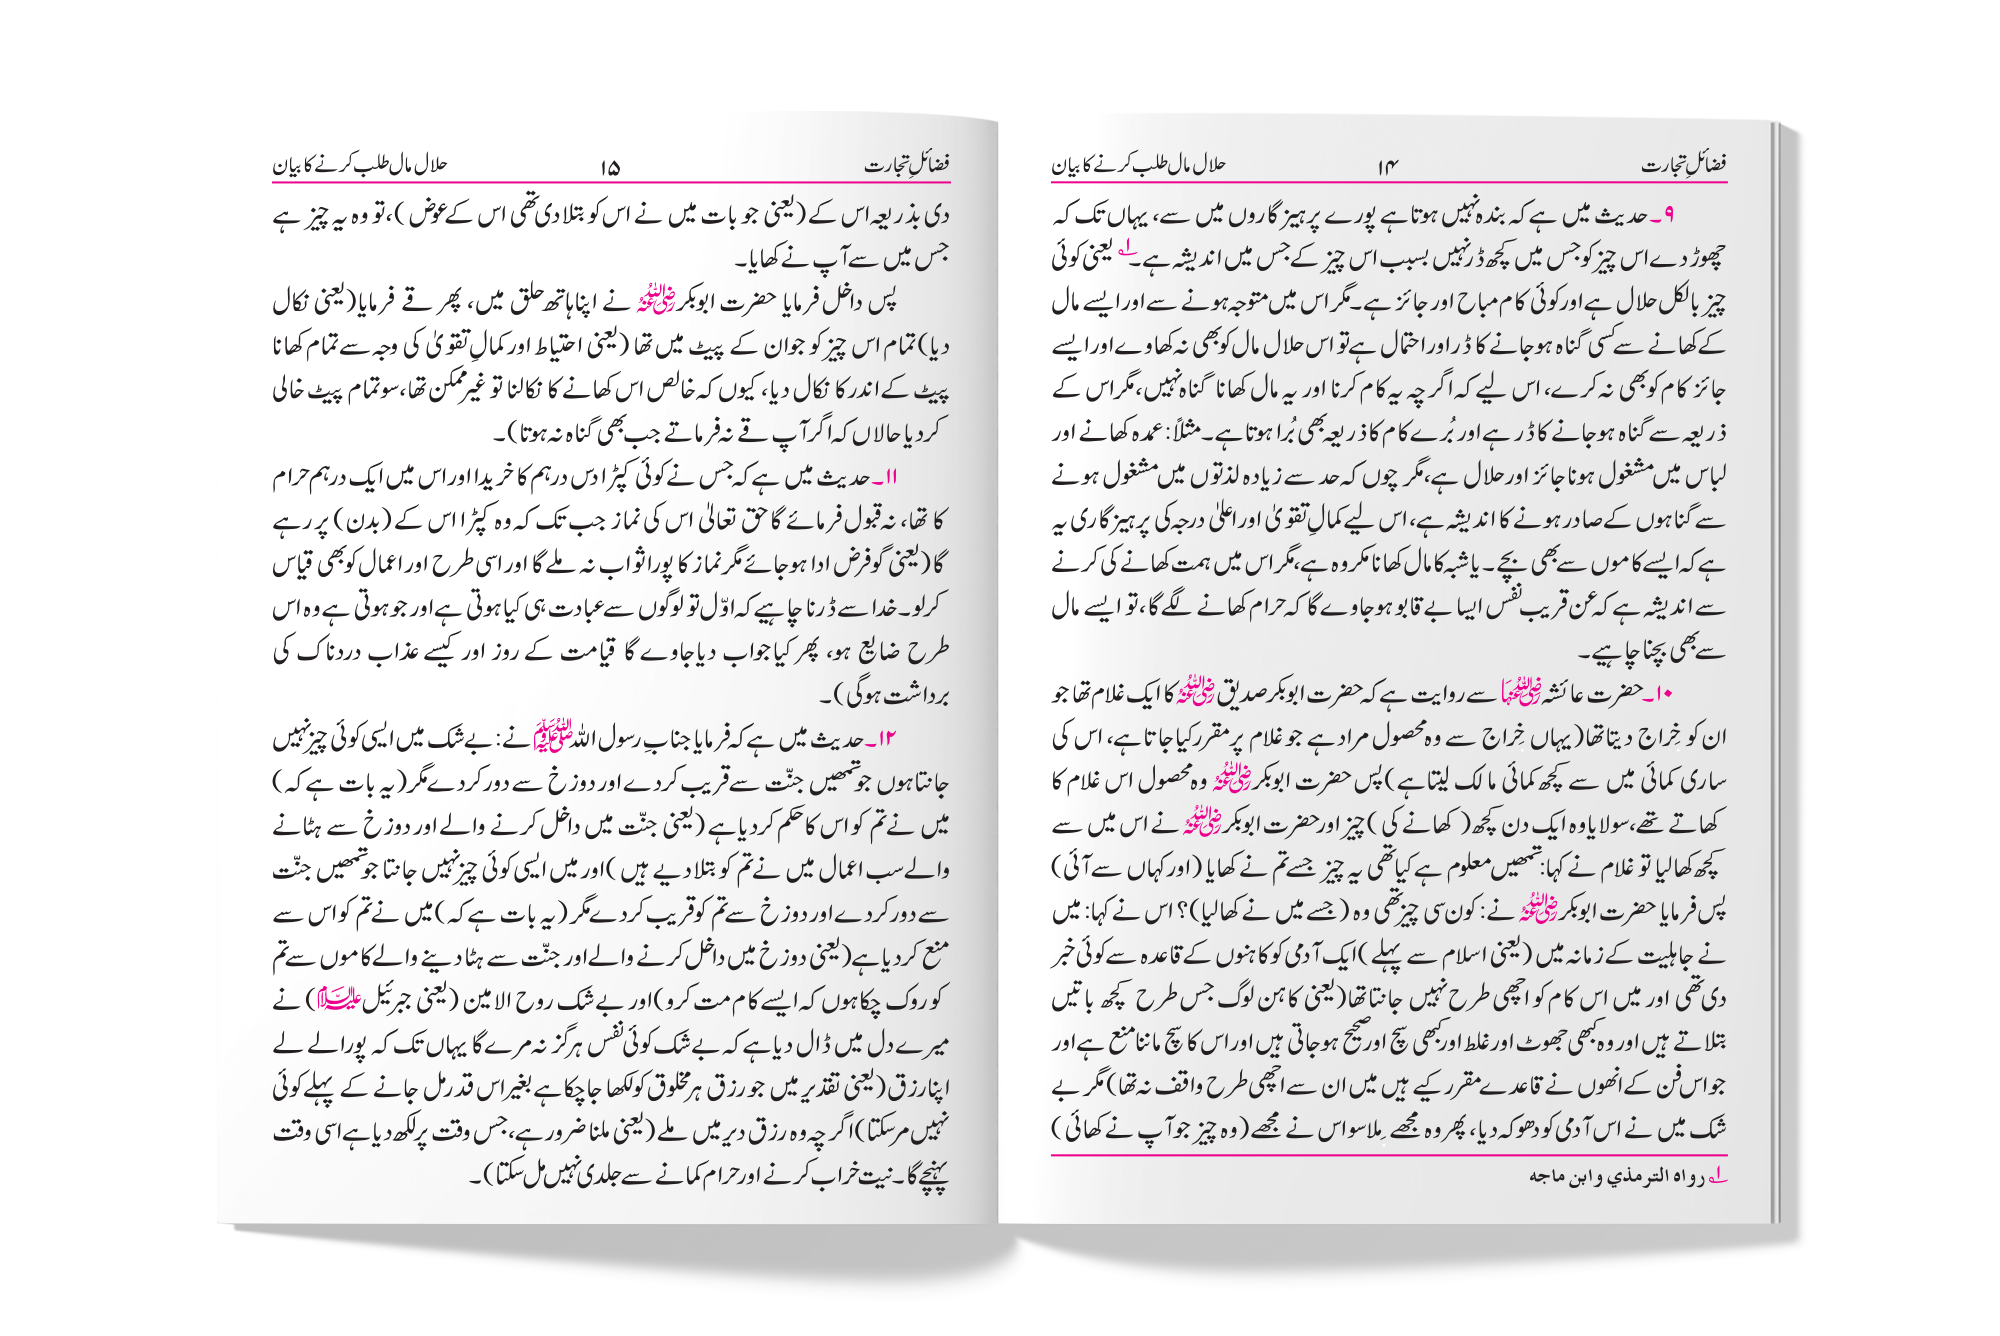 فضائلِ تجارت ۱۴ حلال مال طلب کرنے کا بیان
۹۔ حدیث میں ہے کہ بندہ نہیں ہوتا ہے پورے پرہیز گاروں میں سے، یہاں تک کہ
چھوڑ دے اس چیز کو جس میں کچھ ڈر نہیں بسبب اس چیز کے جس میں اندیشہ ہے۔ ؂۱ یعنی کوئی
چیز بالکل حلال ہے اور کوئی کام مباح اور جائز ہے۔ مگر اس میں متوجہ ہونے سے اور ایسے مال
کے کھانے سے کسی گناہ ہوجانے کا ڈر اور احتمال ہے تو اس حلال مال کو بھی نہ کھاوے اور ایسے
جائز کام کو بھی نہ کرے، اس لیے کہ اگر چہ یہ کام کرنا اور یہ مال کھانا گناہ نہیں، مگر اس کے
ذریعہ سے گناہ ہوجانے کا ڈر ہے اور بُرے کام کا ذریعہ بھی بُرا ہوتا ہے۔ مثلاً: عمدہ کھانے اور
لباس میں مشغول ہونا جائز اور حلال ہے، مگر چوں کہ حد سے زیادہ لذتوں میں مشغول ہونے
سے گناہوں کے صادر ہونے کا اندیشہ ہے، اس لیے کمالِ تقویٰ اور اعلیٰ درجہ کی پرہیز گاری یہ
ہے کہ ایسے کاموں سے بھی بچے۔ یا شبہ کا مال کھانا مکروہ ہے، مگر اس میں ہمت کھانے کی کرنے
سے اندیشہ ہے کہ عن قریب نفس ایسا بے قابو ہوجاوے گا کہ حرام کھانے لگے گا، تو ایسے مال
سے بھی بچنا چاہیے۔
۱۰۔ حضرت عائشہ رضی اللہ عنہا سے روایت ہے کہ حضرت ابوبکر صدیق رضی اللہ عنہ کا ایک غلام تھا جو
ان کو خِراج دیتا تھا (یہاں خِراج سے وہ محصول مراد ہے جو غلام پر مقرر کیا جاتا ہے، اس کی
ساری کمائی میں سے کچھ کمائی مالک لیتا ہے) پس حضرت ابوبکر رضی اللہ عنہ وہ محصول اس غلام کا
کھاتے تھے، سولایا وہ ایک دن کچھ (کھانے کی) چیز اور حضرت ابوبکر رضی اللہ عنہ نے اس میں سے
کچھ کھالیا تو غلام نے کہا: تمھیں معلوم ہے کیا تھی یہ چیز جسے تم نے کھایا (اور کہاں سے آئی)
پس فرمایا حضرت ابوبکر رضی اللہ عنہ نے: کون سی چیز تھی وہ (جسے میں نے کھالیا)؟ اس نے کہا: میں
نے جاہلیت کے زمانہ میں (یعنی اسلام سے پہلے) ایک آدمی کو کاہنوں کے قاعدہ سے کوئی خبر
دی تھی اور میں اس کام کو اچھی طرح نہیں جانتا تھا (یعنی کاہن لوگ جس طرح کچھ باتیں
بتلاتے ہیں اور وہ کبھی جھوٹ اور غلط اور کبھی سچ اور صحیح ہوجاتی ہیں اور اس کا سچ ماننا منع ہے اور
جو اس فن کے انھوں نے قاعدے مقرر کیے ہیں میں ان سے اچھی طرح واقف نہ تھا) مگر بے
شک میں نے اس آدمی کو دھوکہ دیا، پھر وہ مجھے مِلا سو اس نے مجھے (وہ چیز جو آپ نے کھائی)
؂۱ رواہ الترمذي وابن ماجه
فضائلِ تجارت ۱۵ حلال مال طلب کرنے کا بیان
دی بذریعہ اس کے (یعنی جو بات میں نے اس کو بتلادی تھی اس کے عوض)، تو وہ یہ چیز ہے
جس میں سے آپ نے کھایا۔
پس داخل فرمایا حضرت ابوبکر رضی اللہ عنہ نے اپنا ہاتھ حلق میں، پھر قے فرمایا (یعنی نکال
دیا) تمام اس چیز کو جوان کے پیٹ میں تھا (یعنی احتیاط اور کمالِ تقویٰ کی وجہ سے تمام کھانا
پیٹ کے اندر کا نکال دیا، کیوں کہ خالص اس کھانے کا نکالنا تو غیر ممکن تھا، سو تمام پیٹ خالی
کردیا حالاں کہ اگر آپ قے نہ فرماتے جب بھی گناہ نہ ہوتا)۔
۱۱۔ حدیث میں ہے کہ جس نے کوئی کپڑا دس درہم کا خریدا اور اس میں ایک درہم حرام
کا تھا، نہ قبول فرمائے گا حق تعالیٰ اس کی نماز جب تک کہ وہ کپڑا اس کے (بدن) پر رہے
گا (یعنی گو فرض ادا ہوجائے مگر نماز کا پورا ثواب نہ ملے گا اور اسی طرح اور اعمال کو بھی قیاس
کرلو۔ خدا سے ڈرنا چاہیے کہ اوّل تو لوگوں سے عبادت ہی کیا ہوتی ہے اور جو ہوتی ہے وہ اس
طرح ضایع ہو، پھر کیا جواب دیا جاوے گا قیامت کے روز اور کیسے عذاب دردناک کی
برداشت ہوگی)۔
۱۲۔ حدیث میں ہے کہ فرمایا جنابِ رسول اللہ صلی اللہ علیہ وسلم نے: بے شک میں ایسی کوئی چیز نہیں
جانتا ہوں جو تمھیں جنّت سے قریب کردے اور دوزخ سے دور کردے مگر (یہ بات ہے کہ)
میں نے تم کو اس کا حکم کردیا ہے (یعنی جنّت میں داخل کرنے والے اور دوزخ سے ہٹانے
والے سب اعمال میں نے تم کو بتلا دیے ہیں) اور میں ایسی کوئی چیز نہیں جانتا جو تمھیں جنّت
سے دور کردے اور دوزخ سے تم کو قریب کردے مگر (یہ بات ہے کہ) میں نے تم کو اس سے
منع کردیا ہے (یعنی دوزخ میں داخل کرنے والے اور جنّت سے ہٹا دینے والے کاموں سے تم
کو روک چکا ہوں کہ ایسے کام مت کرو) اور بے شک روح الامین (یعنی جبرئیل علیہ السلام) نے
میرے دل میں ڈال دیا ہے کہ بے شک کوئی نفس ہرگز نہ مرے گا یہاں تک کہ پورا لے لے
اپنا رزق (یعنی تقدیر میں جو رزق ہر مخلوق کو لکھا جاچکا ہے بغیر اس قدر مل جانے کے پہلے کوئی
نہیں مرسکتا) اگر چہ وہ رزق دیر میں ملے (یعنی ملنا ضرور ہے، جس وقت پر لکھ دیا ہے اسی وقت
پہنچے گا۔ نیت خراب کرنے اور حرام کمانے سے جلدی نہیں مل سکتا)۔